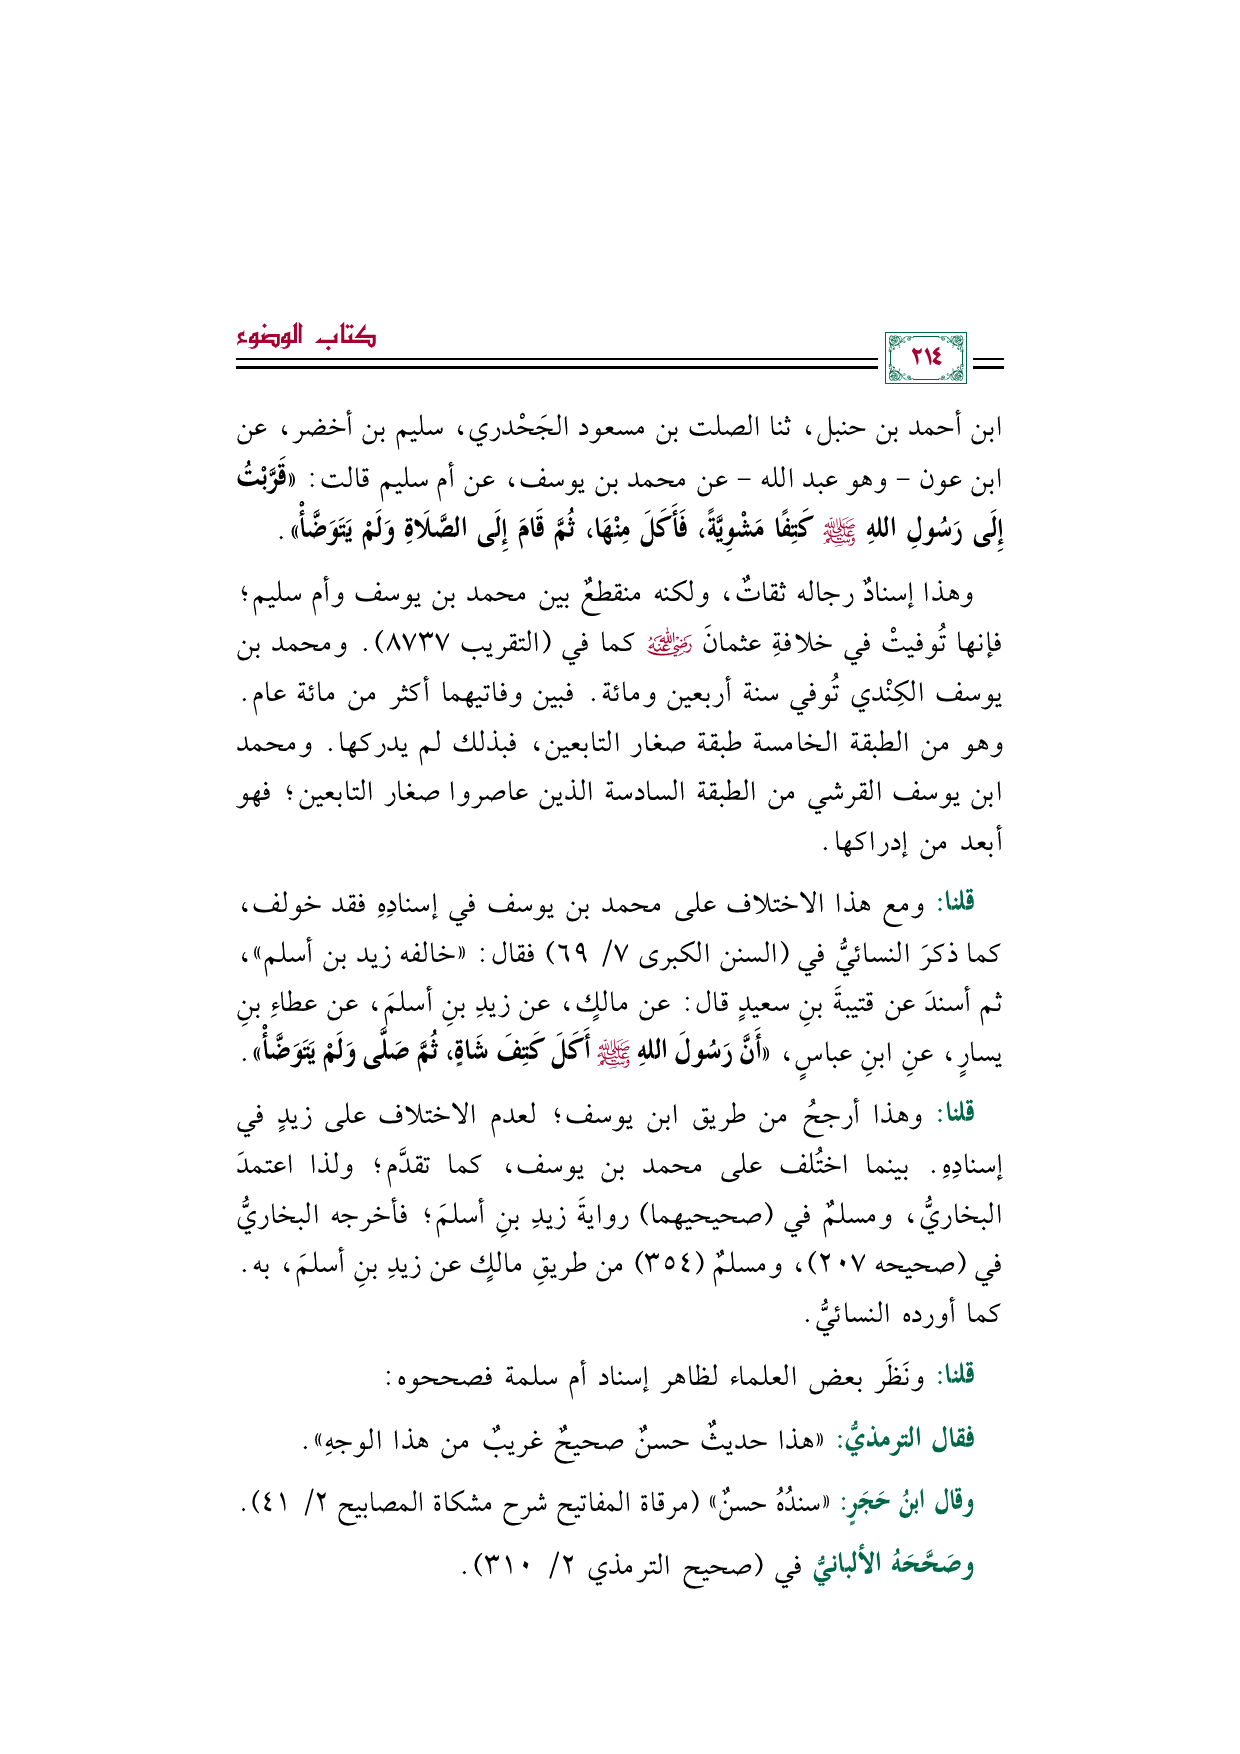 كتاب الوضوء
٢١٤
ابن أحمد بن حنبل، ثنا الصلت بن مسعود الجَحْدري، سليم بن أخضر، عن
ابن عون - وهو عبد الله - عن محمد بن يوسف، عن أم سليم قالت: «قَرَّبْتُ
إِلَى رَسُولِ اللهِ ﷺ كَتِفًا مَشْوِيَّةً، فَأَكَلَ مِنْهَا، ثُمَّ قَامَ إِلَى الصَّلَاةِ وَلَمْ يَتَوَضَّأْ».
وهذا إسنادٌ رجاله ثقاتٌ، ولكنه منقطعٌ بين محمد بن يوسف وأم سليم؛
فإنها تُوفيتْ في خلافةِ عثمانَ رضي الله عنه كما في (التقريب ٨٧٣٧). ومحمد بن
يوسف الكِنْدي تُوفي سنة أربعين ومائة. فبين وفاتيهما أكثر من مائة عام.
وهو من الطبقة الخامسة طبقة صغار التابعين، فبذلك لم يدركها. ومحمد
ابن يوسف القرشي من الطبقة السادسة الذين عاصروا صغار التابعين؛ فهو
أبعد من إدراكها.
قلنا: ومع هذا الاختلاف على محمد بن يوسف في إسنادِهِ فقد خولف،
كما ذكرَ النسائيُّ في (السنن الكبرى ٧/ ٦٩) فقال: «خالفه زيد بن أسلم»،
ثم أسندَ عن قتيبةَ بنِ سعيدٍ قال: عن مالكٍ، عن زيدِ بنِ أسلمَ، عن عطاءِ بنِ
يسارٍ، عنِ ابنِ عباسٍ، «أَنَّ رَسُولَ اللهِ ﷺ أَكَلَ كَتِفَ شَاةٍ، ثُمَّ صَلَّى وَلَمْ يَتَوَضَّأْ».
قلنا: وهذا أرجحُ من طريق ابن يوسف؛ لعدم الاختلاف على زيدٍ في
إسنادِهِ. بينما اختُلف على محمد بن يوسف، كما تقدَّم؛ ولذا اعتمدَ
البخاريُّ، ومسلمٌ في (صحيحيهما) روايةَ زيدِ بنِ أسلمَ؛ فأخرجه البخاريُّ
في (صحيحه ٢٠٧)، ومسلمٌ (٣٥٤) من طريقِ مالكٍ عن زيدِ بنِ أسلمَ، به.
كما أورده النسائيُّ.
قلنا: ونَظَر بعض العلماء لظاهر إسناد أم سلمة فصححوه:
فقال الترمذيُّ: «هذا حديثٌ حسنٌ صحيحٌ غريبٌ من هذا الوجهِ».
وقال ابنُ حَجَرٍ: «سندُهُ حسنٌ» (مرقاة المفاتيح شرح مشكاة المصابيح ٢/ ٤١).
وصَحَّحَهُ الألبانيُّ في (صحيح الترمذي ٢/ ٣١٠).